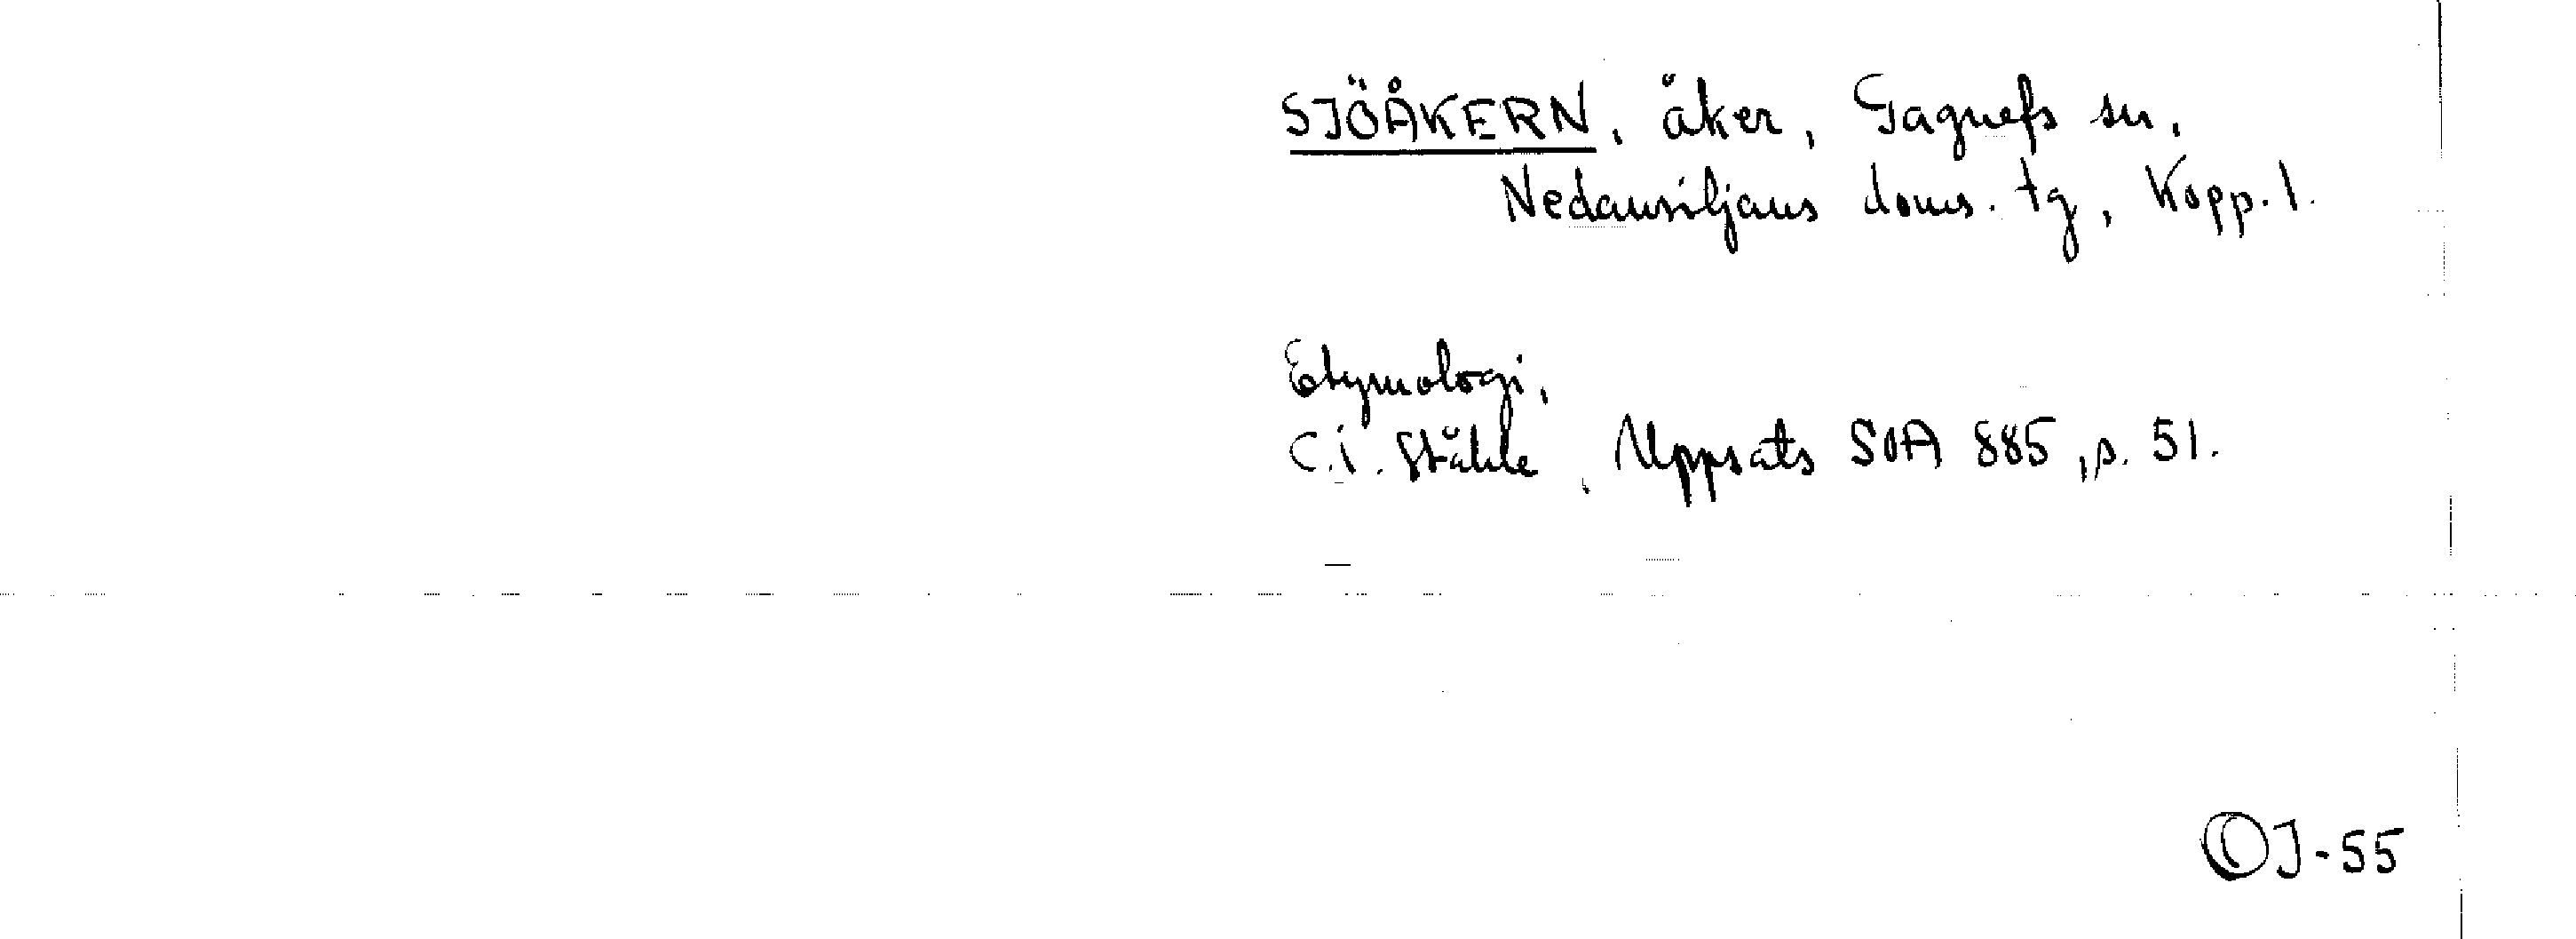 SJÖÅKERN, åker, Gagnefs sn,
Nedansiljans doms. tg, Kopp. l.
Etymologi,
C.I. Ståhle, Uppsats SOA 885, s. 51.
OJ-55